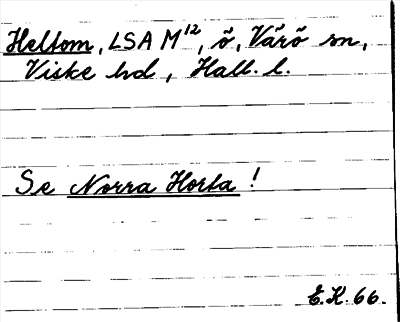 Heltom, LSA M¹², ö, Värö sn,
Viske hd, Hall. l.
Se Norra Horta!
E.K. 66.